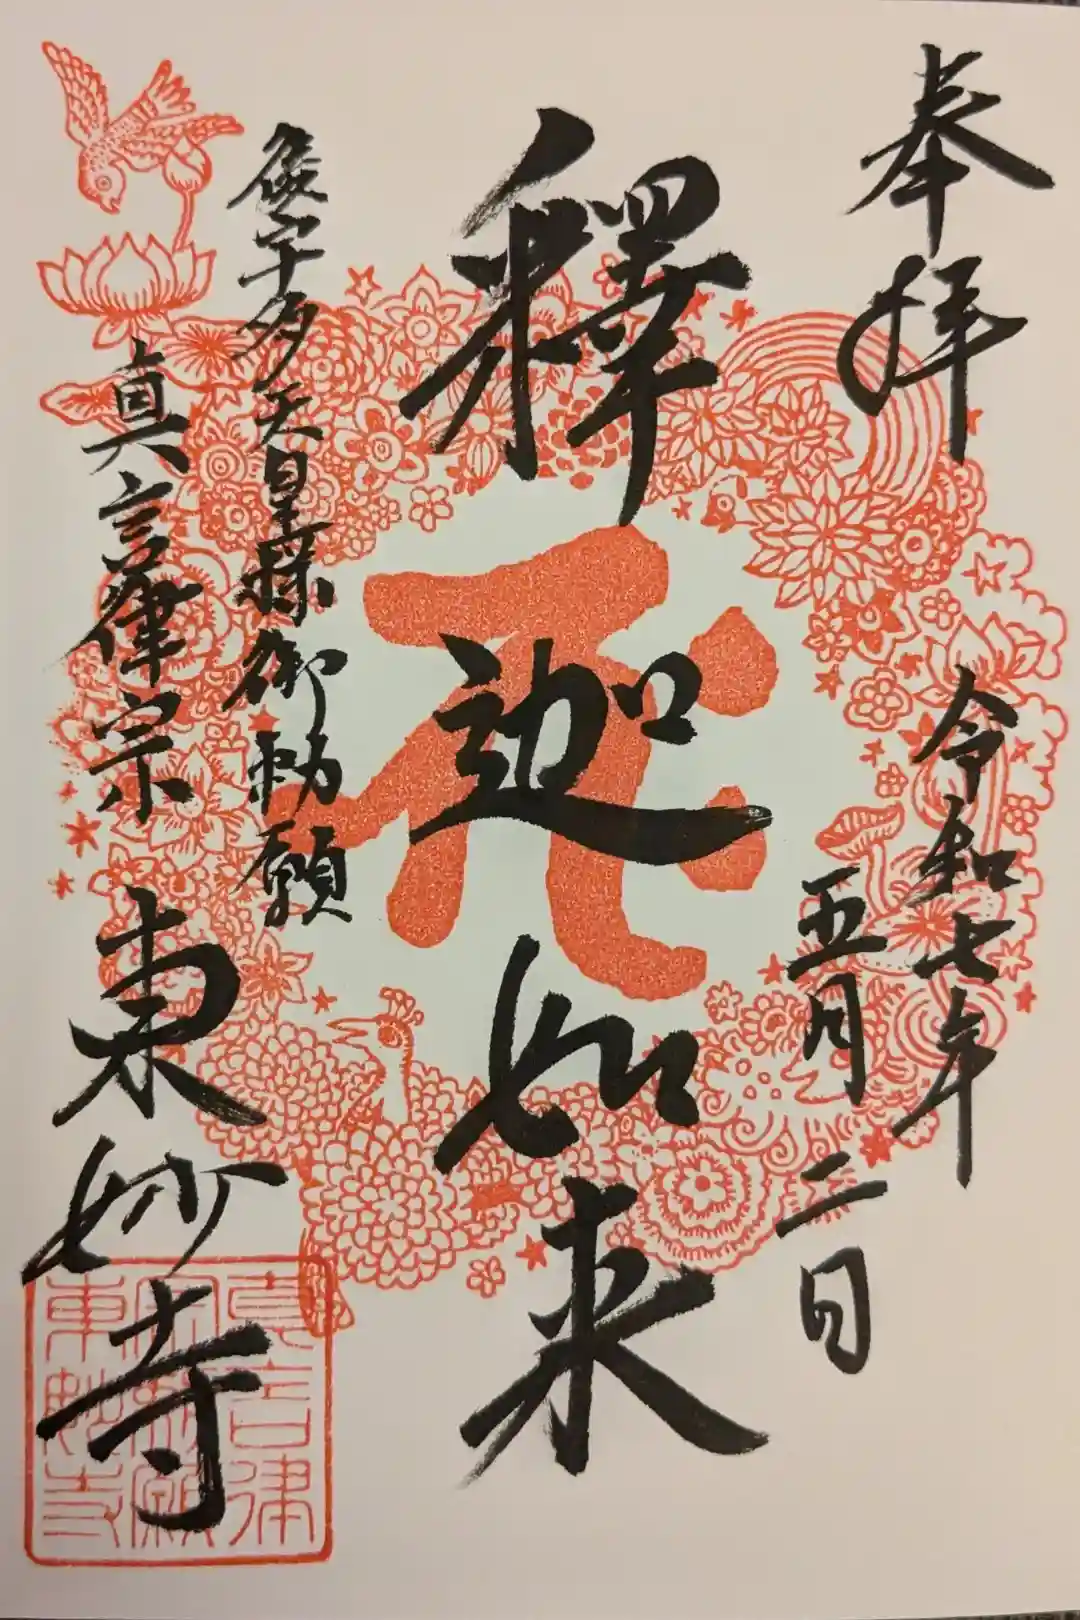 奉拝
令和七年
五月二日
釋迦如来
宇多天皇様御勅願
真言律宗
東妙寺
真言律
東妙寺